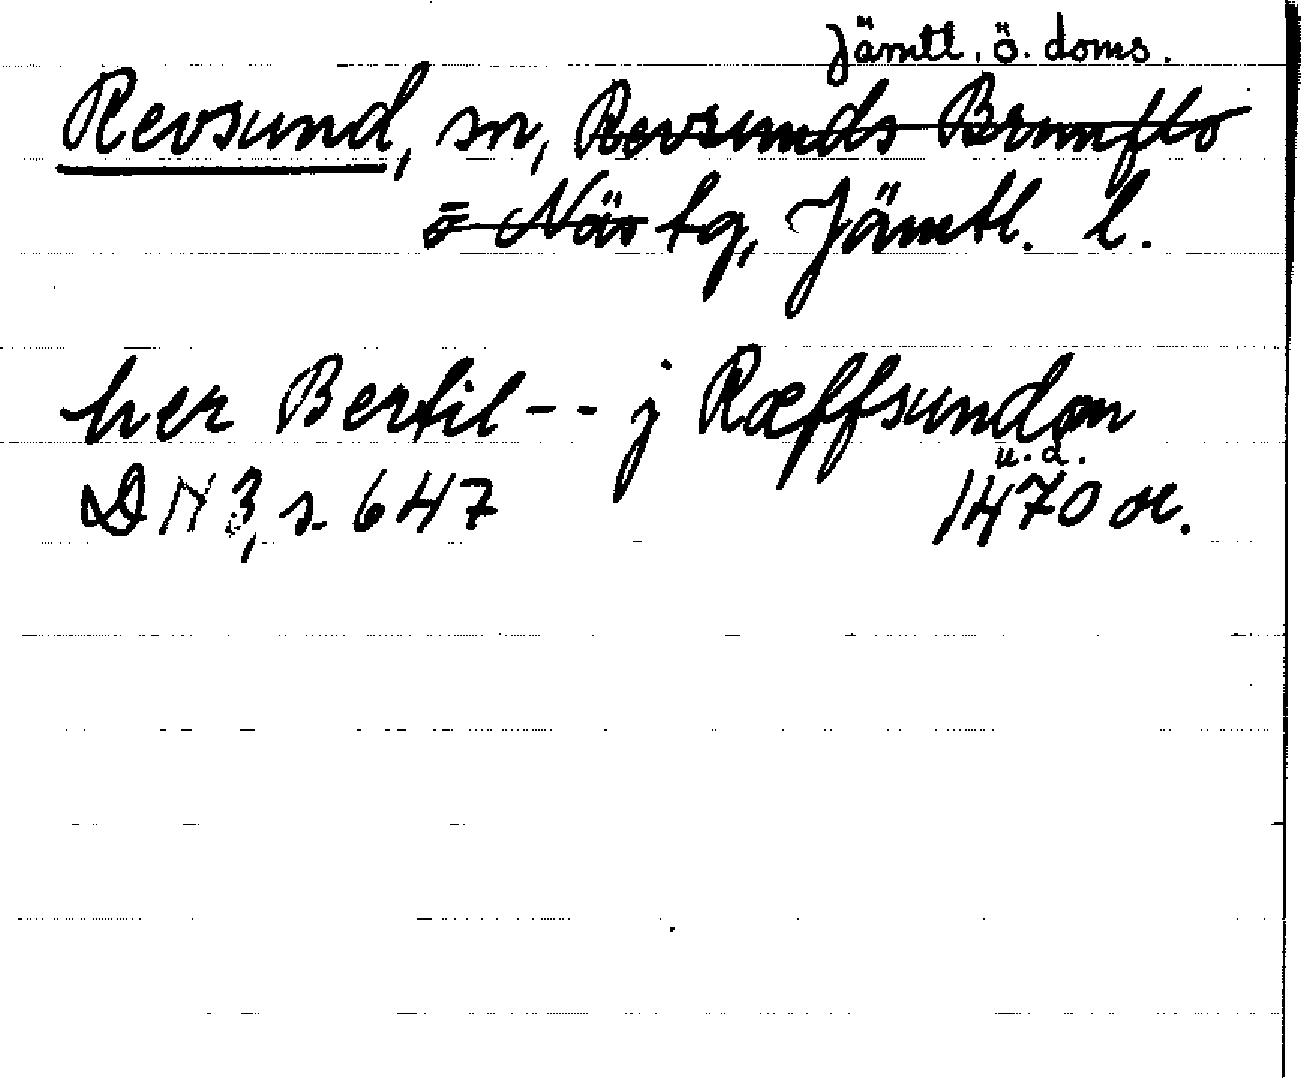 Jämtl. ö. doms.
Revsund, sn, Revsunds Brunflo
o Näs tg, Jämtl. l.
her Bertil -- j Ræffsundøn
u. d.
DN 3, s. 647 1470 or.